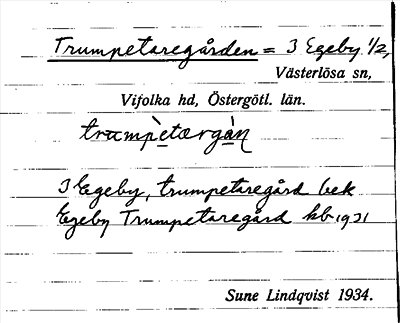 Trumpetaregården = 3 Egeby 1/2,
Västerlösa sn,
Vifolka hd, Östergötl. län.
trampètærgàn
3 Egeby, trumpetaregård bek
Egeby Trumpetaregård kb 1931
Sune Lindqvist 1934.